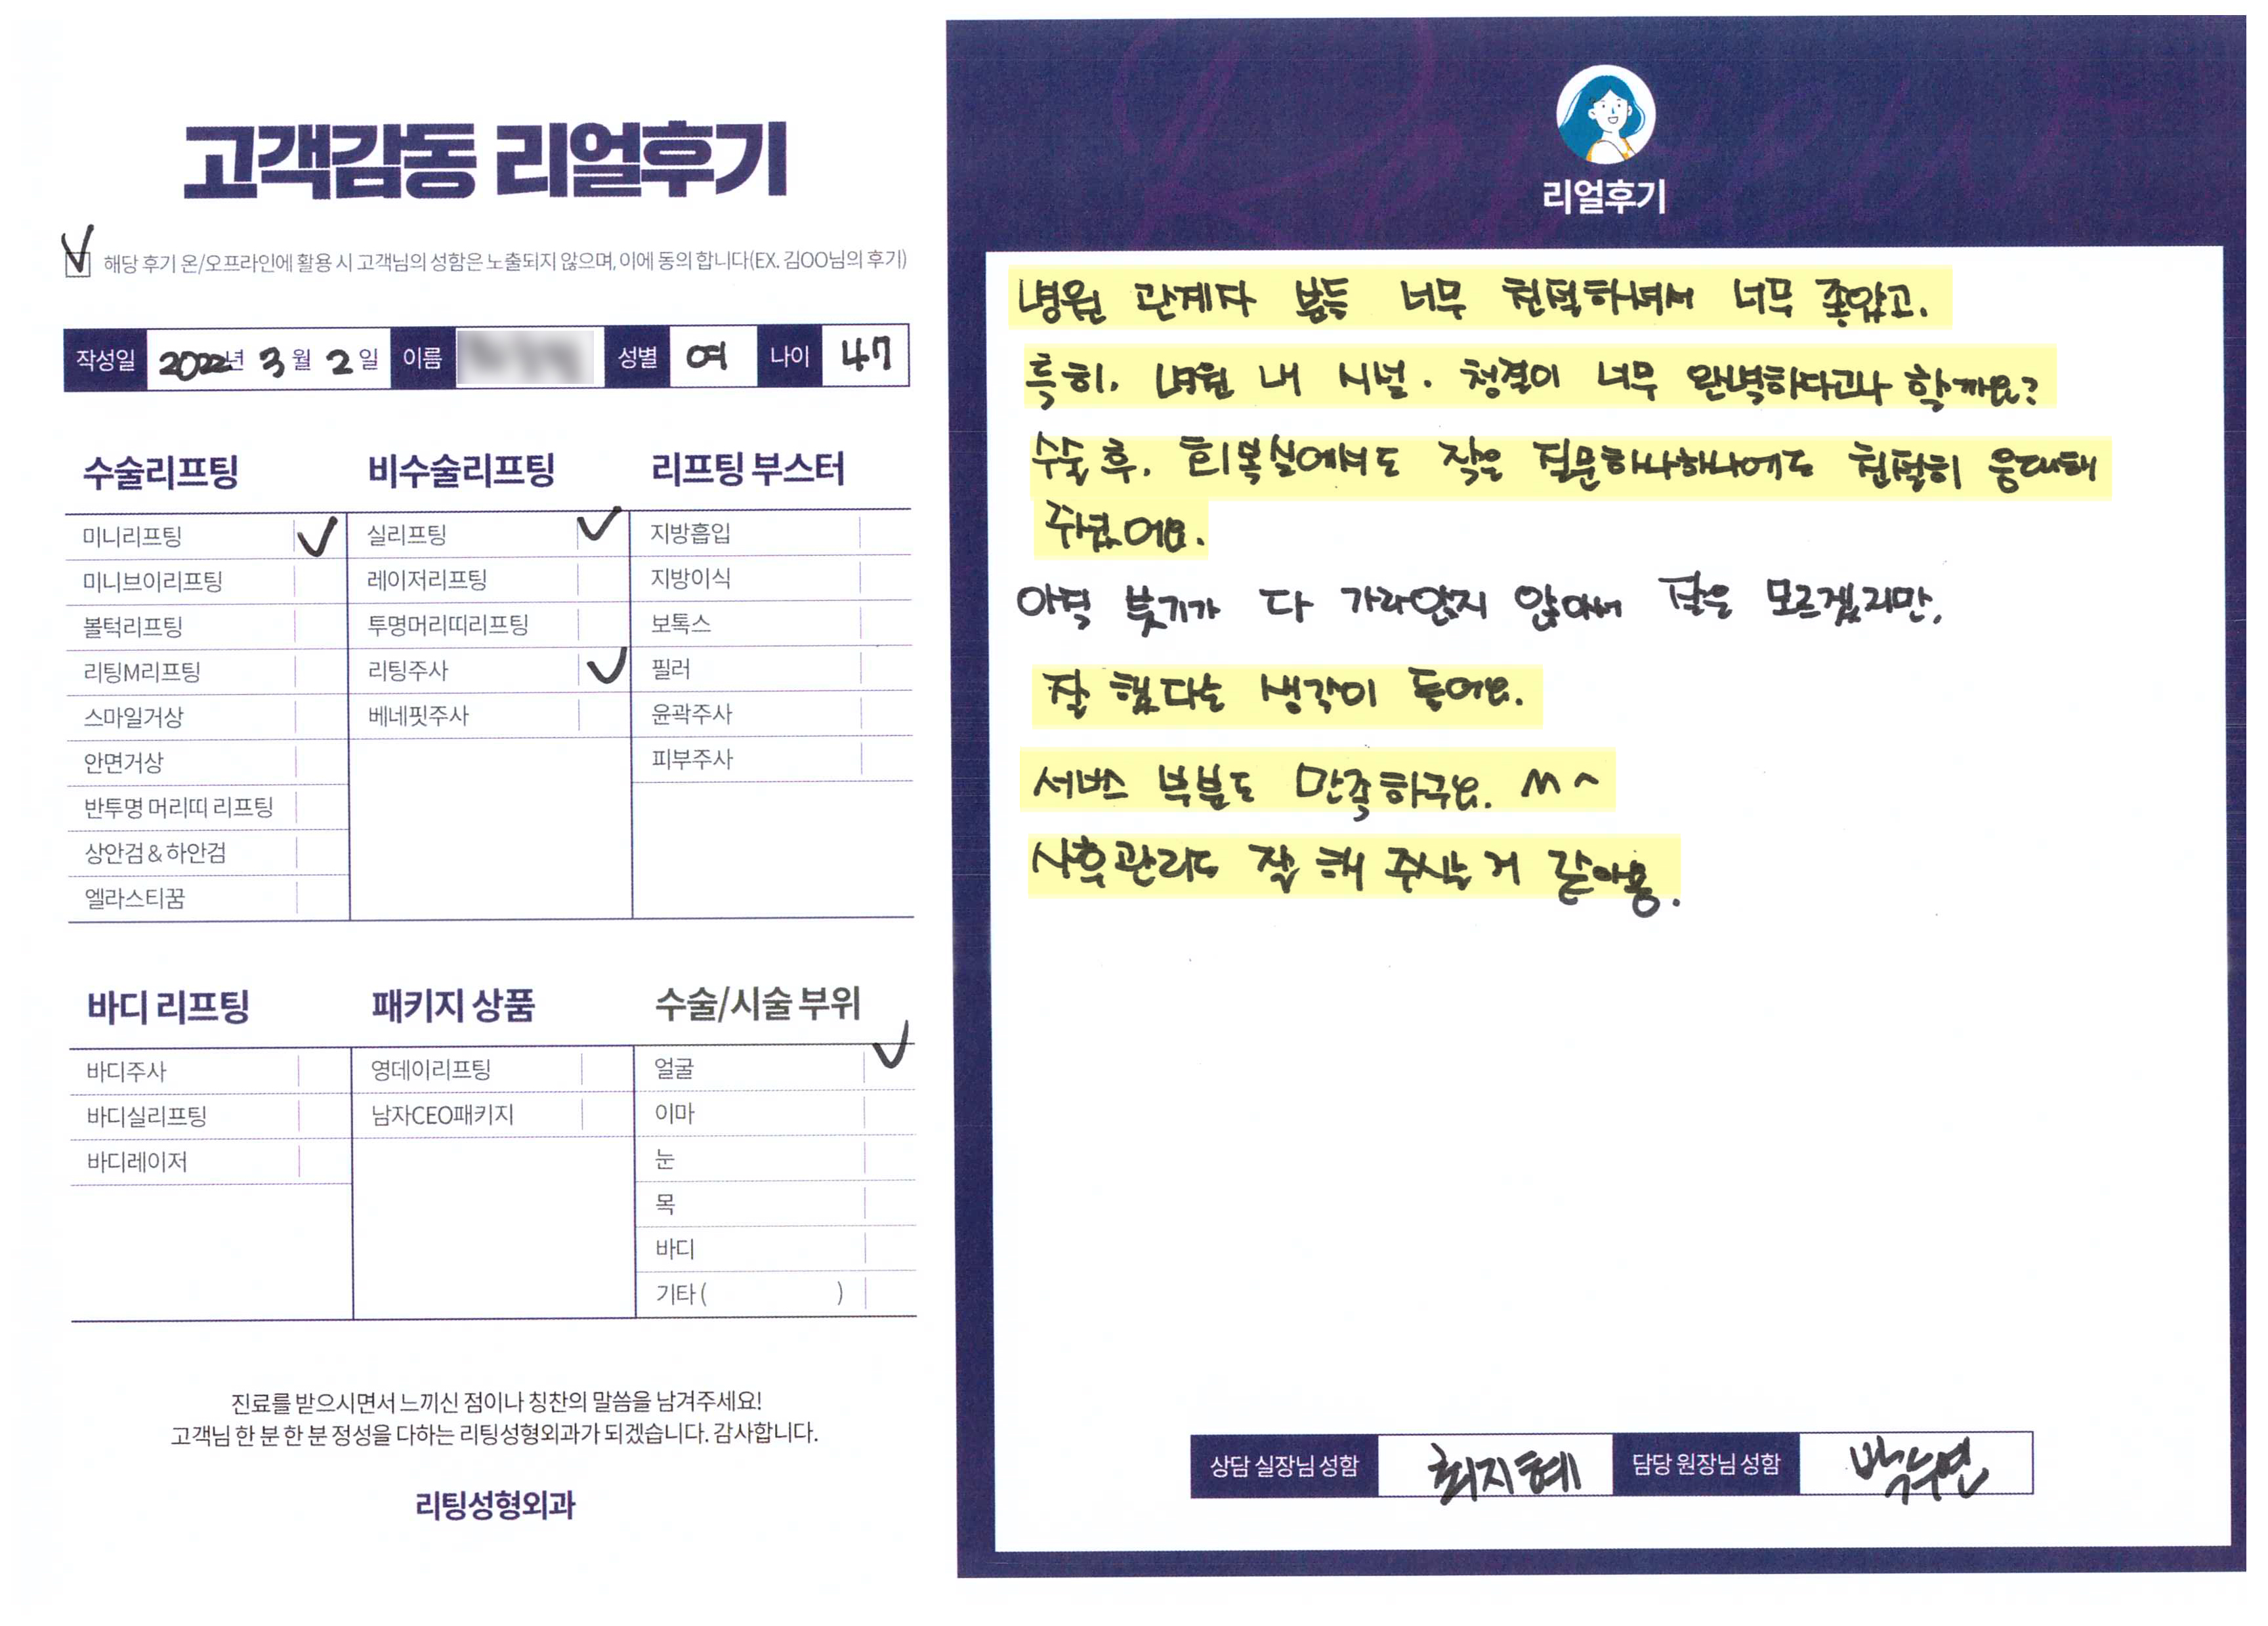 고객감동 리얼후기
해당 후기 온/오프라인에 활용 시 고객님의 성함은 노출되지 않으며, 이에 동의 합니다(EX. 김OO님의 후기)
작성일 2022년 3월 2일 이름 성별 여 나이 47
수술리프팅
미니리프팅
미니브이리프팅
볼턱리프팅
리팅M리프팅
스마일거상
안면거상
반투명 머리띠 리프팅
상안검 & 하안검
엘라스티꿈
비수술리프팅
실리프팅
레이저리프팅
투명머리띠리프팅
리팅주사
베네핏주사
리프팅 부스터
지방흡입
지방이식
보톡스
필러
윤곽주사
피부주사
바디 리프팅
바디주사
바디실리프팅
바디레이저
패키지 상품
영데이리프팅
남자CEO패키지
수술/시술 부위
얼굴
이마
눈
목
바디
기타 ( )
진료를 받으시면서 느끼신 점이나 칭찬의 말씀을 남겨주세요!
고객님 한 분 한 분 정성을 다하는 리팅성형외과가 되겠습니다. 감사합니다.
리팅성형외과
리얼후기
병원 관계자 분들 너무 친절하셔서 너무 좋았고.
특히. 병원 내 시설. 청결이 너무 완벽하다고나 할까요?
수술 후. 회복실에서도 작은 질문하나하나에도 친절히 응대해
주셨어요.
아직 붓기가 다 가라앉지 않아서 잘은 모르겠지만,
잘 했다는 생각이 들어요.
서비스 부분도 만족하구요. ^^^
사후관리도 잘 해 주시는 거 같아용.
상담 실장님 성함 최지혜 담당 원장님 성함 박수연